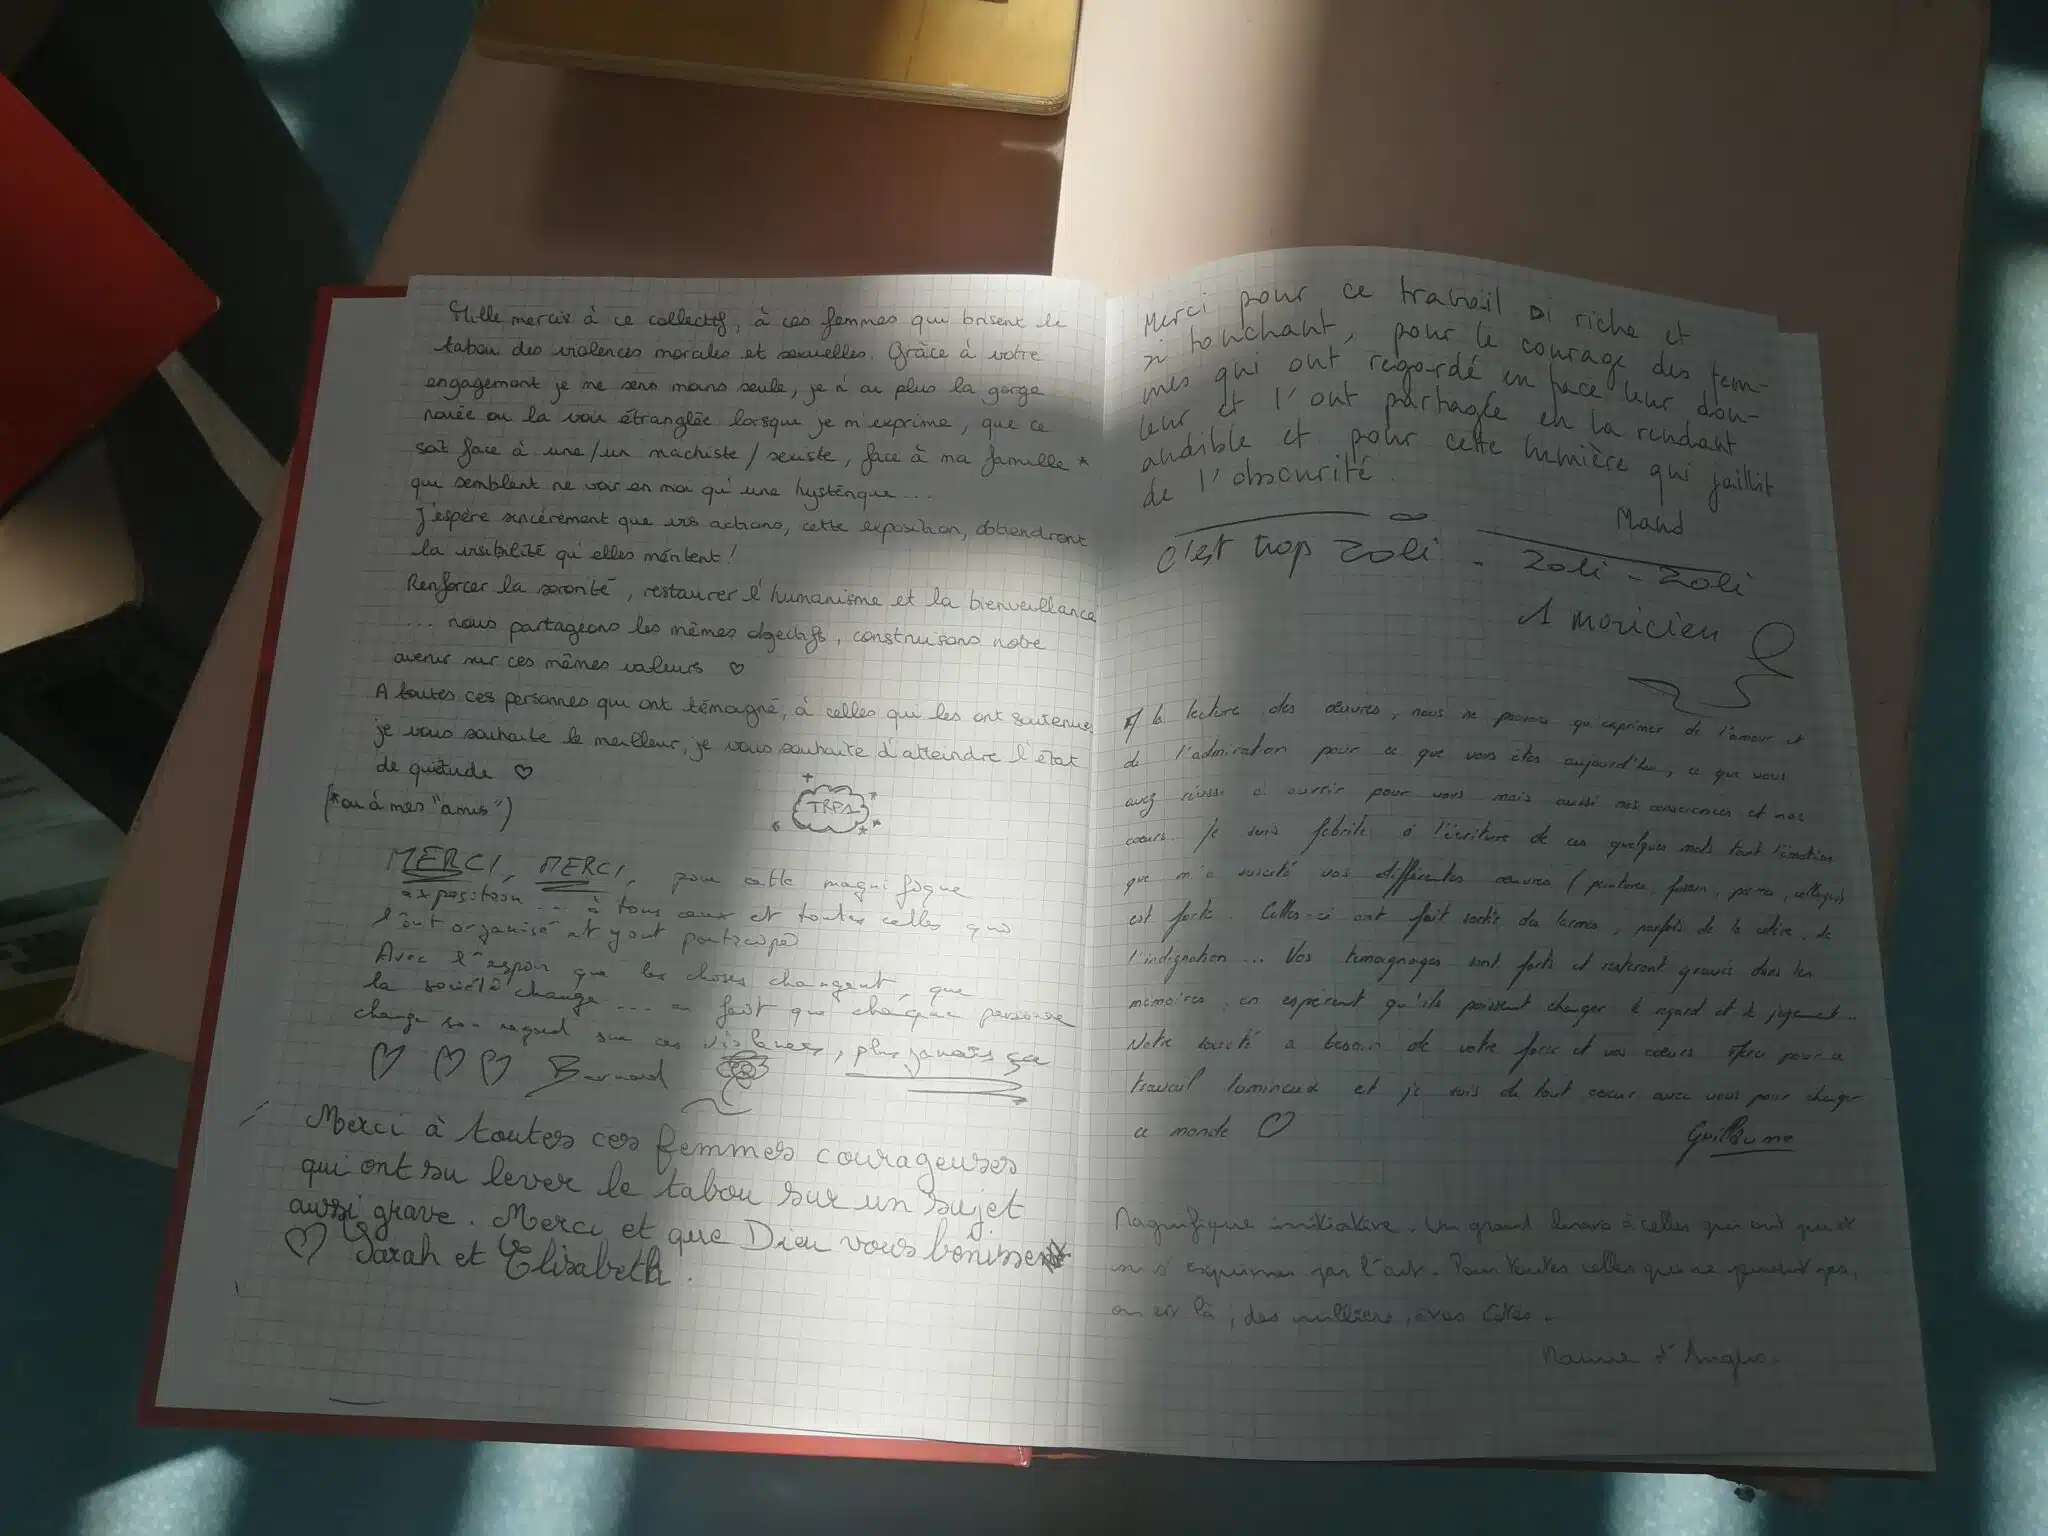 Mille mercis à ce collectif, à ces femmes qui brisent le
tabou des violences morales et sexuelles. Grâce à votre
engagement je me sens moins seule, je n'ai plus la gorge
nouée ou la voix étranglée lorsque je m'exprime, que ce
soit face à une/un machiste/sexiste, face à ma famille *
qui semblent ne voir en moi qu'une hystérique...
J'espère sincèrement que vos actions, cette exposition, obtiendront
la visibilité qu'elles méritent !
Renforcer la sororité, restaurer l'humanisme et la bienveillance
... nous partageons les mêmes objectifs, construisons notre
avenir sur ces mêmes valeurs ♡
A toutes ces personnes qui ont témoigné, à celles qui les ont soutenues
je vous souhaite le meilleur, je vous souhaite d'atteindre l'état
de quiétude ♡
(*ou à mes "amis")
MERCI, MERCI, pour cette magnifique
exposition ... à tous ceux et toutes celles qui
l'ont organisé et y ont participé
Avec l'espoir que les choses changent, que
la société change ... en fait que chaque personne
change son regard sur ces violences, plus jamais ça
♡ ♡ ♡ Bernard
Merci à toutes ces femmes courageuses
qui ont su lever le tabou sur un sujet
aussi grave. Merci et que Dieu vous bénisse
♡ Sarah et Elisabeth.
Merci pour ce travail si riche et
si touchant, pour le courage des fem-
mes qui ont regardé en face leur dou-
leur et l'ont partagée en la rendant
audible et pour cette lumière qui jaillit
de l'obscurité.
c'est trop zoli - zoli - zoli
1 moricien
A la lecture des œuvres, nous ne pouvons qu'exprimer de l'amour et
de l'admiration pour ce que vous êtes aujourd'hui, ce que vous
avez réussi à ouvrir pour vous mais aussi nos consciences et nos
cœurs. Je suis fébrile à l'écriture de ces quelques mots tant l'émotion
que m'a suscité vos différentes œuvres (peintures, collages)
est forte. Celles-ci ont fait sortir des larmes, parfois de la colère, de
l'indignation ... Vos témoignages sont forts et resteront gravés dans les
mémoires, en espérant qu'ils puissent changer le regard et le jugement...
Notre société a besoin de votre force et vos cœurs. Merci pour ce
travail lumineux et je suis de tout cœur avec vous pour changer
ce monde ♡
Guillaume
Magnifique initiative. Un grand bravo à celles qui ont
s'exprimer par l'art. Pour toutes celles qui ne peuvent pas,
on est là, des milliers, à vos côtés.